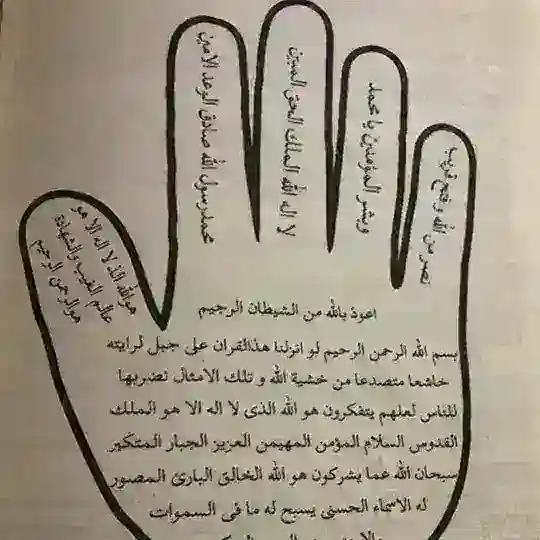 نصر من الله وفتح قريب
وبشر المؤمنين يا محمد
لا اله الله الملك الحق المبين
محمد رسول الله صادق الوعد الامين
هوالله الذ لا اله الا هو
عالم الغيب والشهادة
هوالرحمن الرحيم
اعوذ بالله من الشيطان الرجيم
بسم الله الرحمن الرحيم لو انزلنا هذالقران على جبل لرايته
خاشعا متصدعا من خشية الله و تلك الامثال نضربها
للناس لعلهم يتفكرون هو الله الذى لا اله الا هو الملك
القدوس السلام المؤمن المهيمن العزيز الجبار المتكبر
سبحان الله عما يشركون هو الله الخالق البارئ المصور
له الاسماء الحسنى يسبح له ما فى السموات